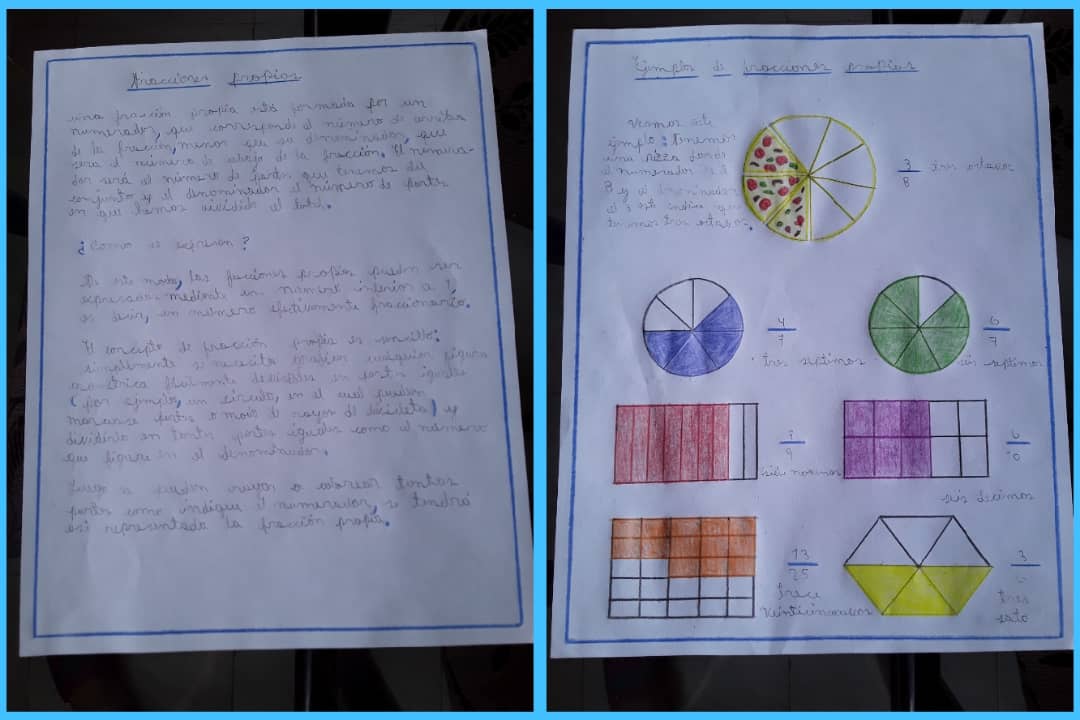 Fracciones propias
una fracción propia está formada por un
numerador, que corresponde al número de arriba
de la fracción, menor que su denominador, que
sera el número de abajo de la fracción. El numera-
dor será el número de partes que tenemos del
conjunto y el denominador el número de partes
en que hemos dividido el total.
¿Como se expresan?
De este modo, las fracciones propias pueden ser
expresadas mediante un numero inferior a 1,
es decir, un número efectivamente fraccionario.
El concepto de fracción propia es sencillo:
simplemente se necesita graficar cualquier figura
geométrica facilmente decidible en partes iguales
(por ejemplo, un círculo, en el cual pueden
marcarse partes a modo de rayos de bicicleta) y
dividirla en tantas partes iguales como el número
que figure en el denominador.
Luego se pueden rayar o colorear tantas
partes como indique el numerador, se tendrá
así representada la fracción propia.
Ejemplos de fracciones propias
Veamos este
ejemplo: Tenemos
una pizza donde
el numerador es el
3 y el denominador
el 8 esto indica que
tenemos tres octavos.
3
8
tres octavos
4
7
tres septimos
6
7
seis septimos
9
novenos
6
10
seis decimos
13
25
trece
veinticincoavos
3
tres